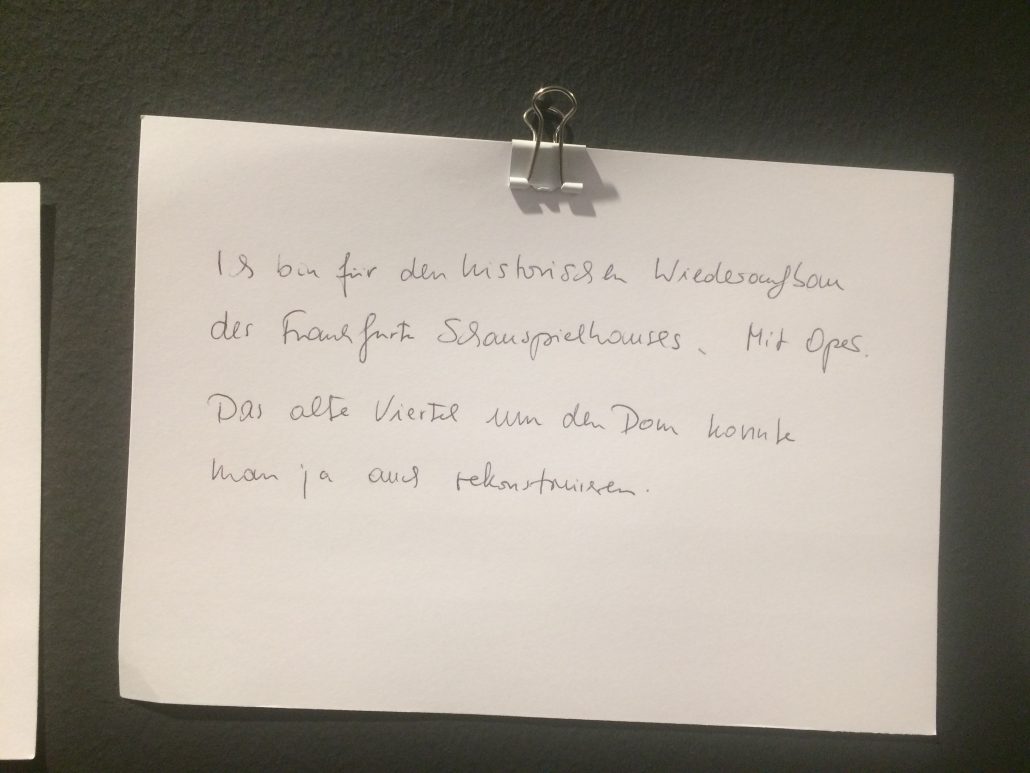 Ich bin für den historischen Wiederaufbau
des Frankfurter Schauspielhauses. Mit Oper.
Das alte Viertel um den Dom konnte
man ja auch rekonstruieren.